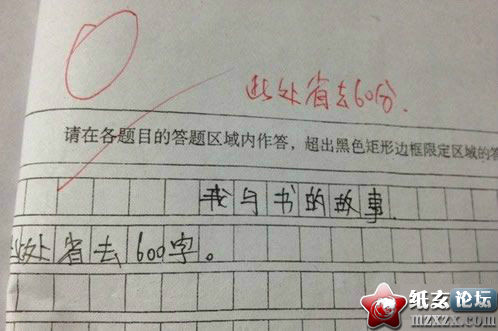 0
此处省去60分.
请在各题目的答题区域内作答，超出黑色矩形边框限定区域的答
我与书的故事
此处省去600字。
纸玄论坛
mzxzx.com